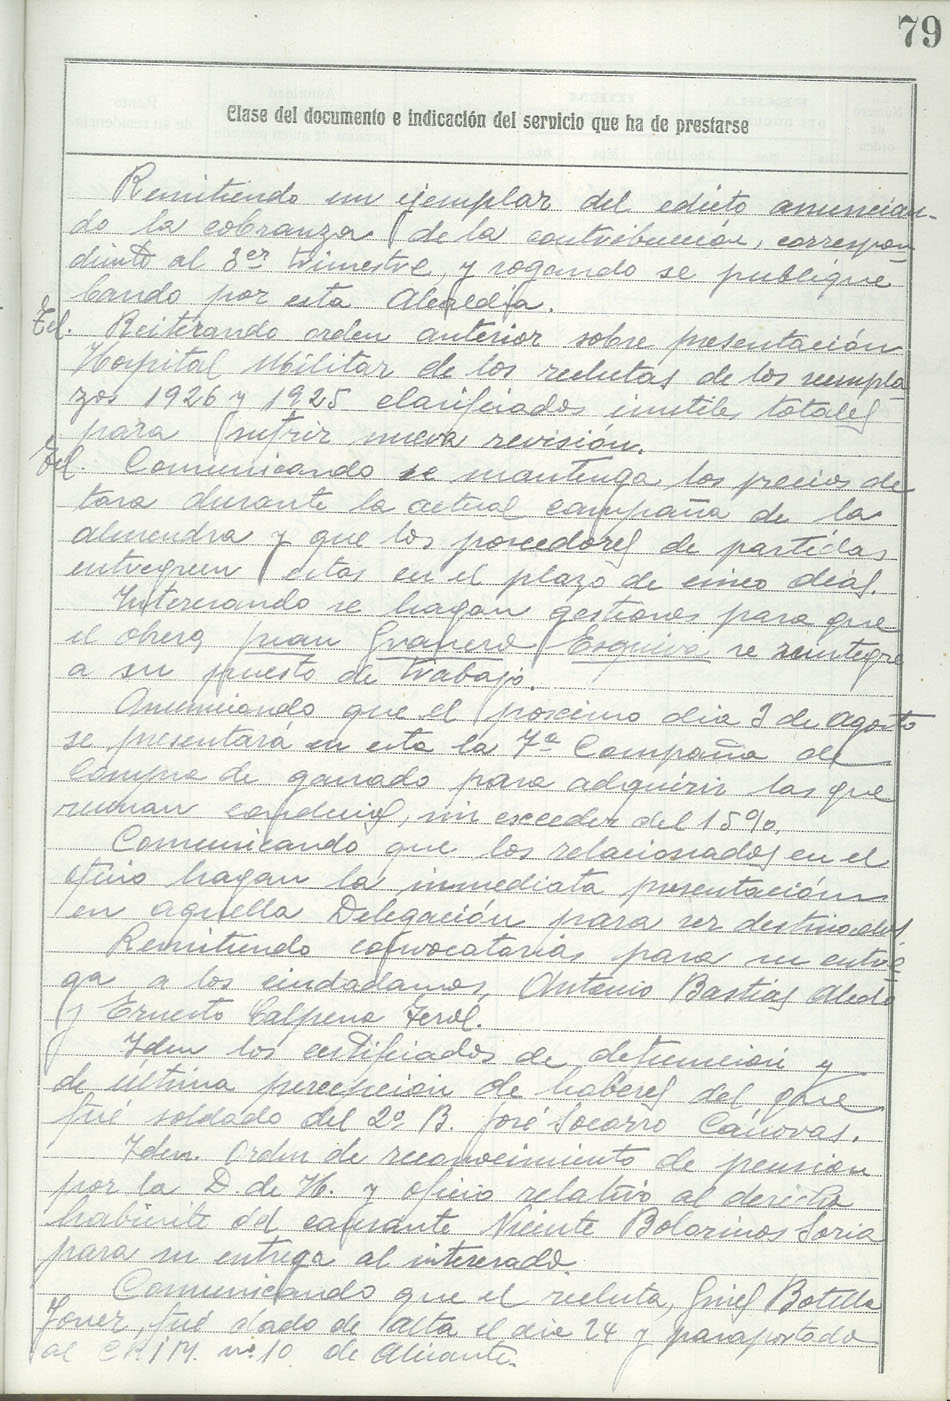 79
Clase del documento e indicación del servicio que ha de prestarse
Remitiendo un ejemplar del edicto anuncian-
do la cobranza de la contribución, correspon-
diente al 3er trimestre, y rogando se publique
bando por esta Alcaldía.
Tel. Reiterando orden anterior sobre presentación
Hospital Militar de los reclutas de los reempla
zos 1926 y 1925 clasificados inutiles totales
para sufrir nueva revisión.
Tel. Comunicando se mantenga los precios de
tasa durante la actual campaña de la
almendra y que los poseedores de partidas
entreguen estas en el plazo de cinco dias.
Interesando se hagan gestiones para que
el obrero Juan Granero Esquiva se reintegre
a su puesto de trabajo.
Anunciando que el proximo dia 3 de agosto
se presentará en esta la 7ª Compañia de
Compra de ganado para adquirir las que
reunan condenies, sin exceder del 15%.
Comunicando que los relacionados en el
oficio hagan la inmediata presentación
en aquella Delegación para ser destinados
Remitiendo convocatorias para su entre
ga a los ciudadanos, Antonio Bastias Aledo
y Ernesto Calpena Ferol.
Idem los certificados de defuncion y
de última percepcion de haberes del que
fué soldado del 2º B. José Socorro Cánovas.
Idem. Orden de reconocimiento de pension
por la D. de H. y oficio relativo al derecho
habiente del causante Vicente Bolarinos Soria
para su entrega al interesado.
Comunicando que el recluta, Ginés Botella
Jover, fué dado de alta el dia 24 y pasaportado
al C.R.I.M. nº 10 de Alicante.